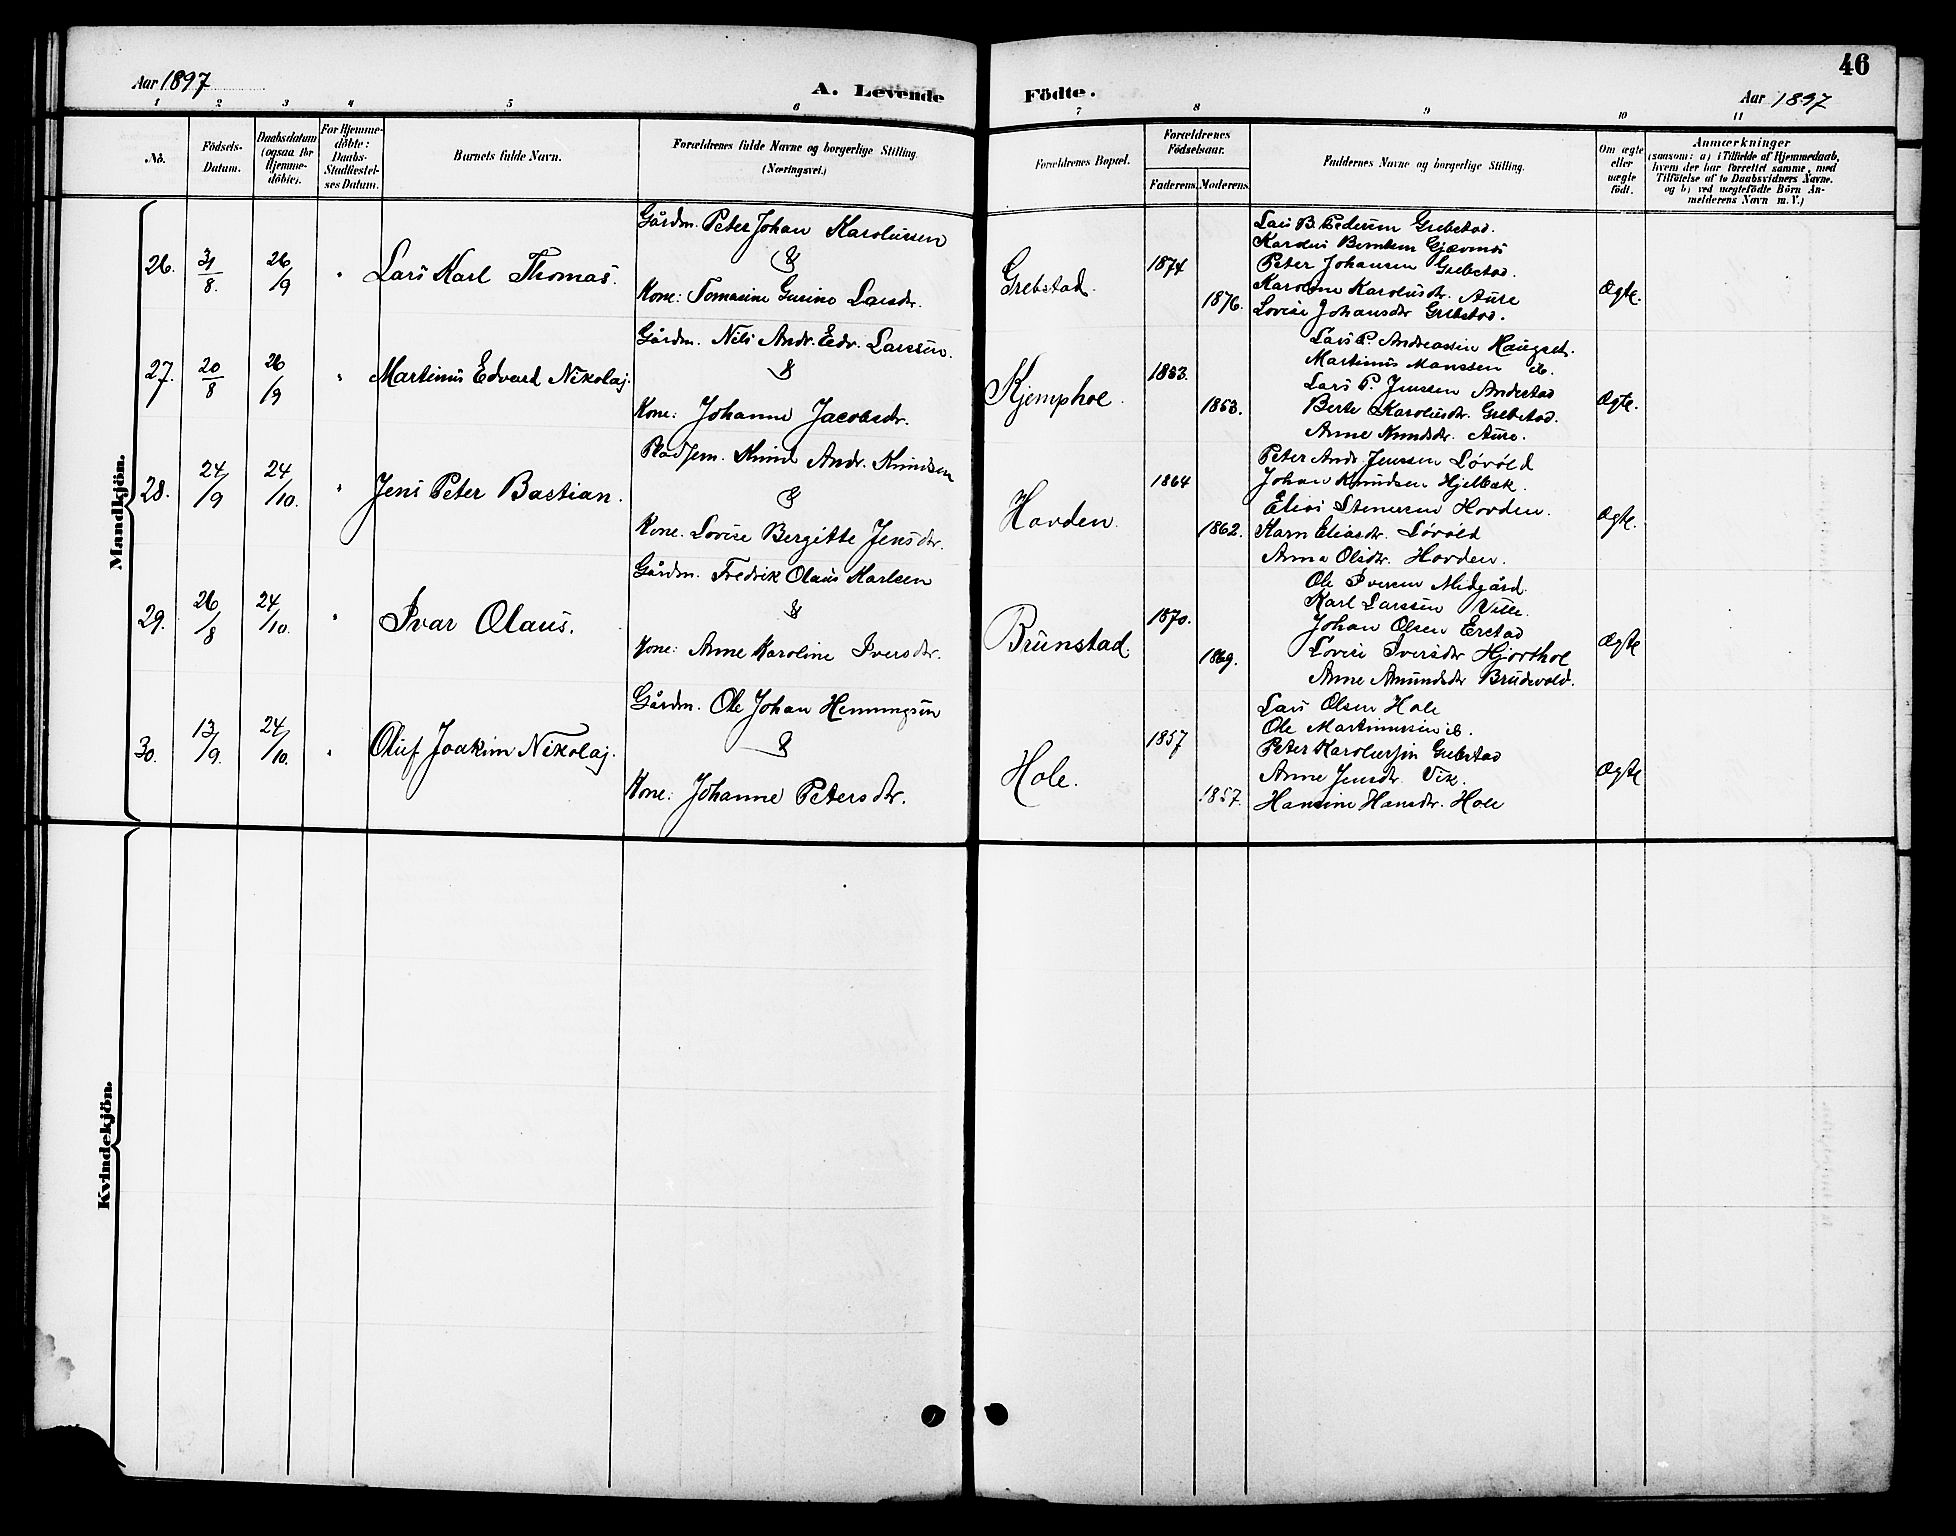 46
Aar 1897
A. Levende Födte.
Aar 1897
1 2 3 4 5 6 7 8 9 10 11
No.
Födsels-Datum.
Daabsdatum (ogsaa for Hjemme-döbte).
For Hjemme-döbte: Daabs-Stadfæstel-ses Datum.
Barnets fulde Navn.
Forældrenes fulde Navne og borgerlige Stilling. (Næringsvei.)
Forældrenes Bopæl.
Forældrenes Födselsaar.
Faderens. Moderens.
Faddernes Navne og borgerlige Stilling.
Om ægte eller uægte födt.
Anmærkninger
(saasom: a) i Tilfælde af Hjemmedaab, hvem der har forrettet samme, med Tilföielse af to Daabsvidners Navne. og b) ved uægtefödte Börn An-melderens Navn m. V.)
Mandkjön.
26. 31/8. 26/9 " Lars Karl Thomas.
Gårdm. Peter Johan Karolussen
&
Kone: Tomasine Gurine Larsdtr.
Grebstad.
1874
1876.
Lars B. Pedersen Grebstad.
Karolus Berntsen
Peter Johansen Grebstad.
Karoline Karolusdtr. Aure
Lovise Johansdtr Grebstad.
Ægte.
27. 20/8 26/9 " Martinus Edvard Nikolaj.
Gårdm. Nils Andr. Edv. Larssen.
&
Kone: Johanne Jacobsdtr.
Kjemphol.
1853.
1853.
Lars P. Andreassen Haugset.
Martinus Manssen ib.
Lars P. Jenssen Andestad
Berte Karolusdtr. Grebstad.
Anne Knudsdtr. Aure.
Ægte.
28. 24/9 24/10. " Jens Peter Bastian.
Pladsem. Knud Andr. Knudsen
&
Kone. Lovise Bergitte Jensdtr.
Hovden.
1864
1862.
Peter Andr. Jenssen Løvold
Johan Knudsen Hjelbak.
Elias Stenersen Hovden.
Karn Eliasdtr. Løvold
Anna Olsdtr. Hovden.
Ægte.
29. 26/8 24/10. " Ivar Olaus.
Gårdm. Fredrik Olaus Karlsen
&
Kone: Anne Karoline Iversdtr.
Brunstad.
1870.
1869.
Ole Iversen Midgård.
Karl Larssen Velle.
Johan Olsen Erstad
Lovise Iversdtr Hjorthol
Anne Amundsdtr Brudevold.
Ægte
30. 13/9. 24/10. " Oluf Joakim Nikolaj.
Gårdm. Ole Johan Hemmingsen
&
Kone: Johanne Petersdtr.
Hole.
1857
1857.
Lars Olsen Hole
Ole Martinussen ib.
Peter Karolussen Grebstad
Anne Jensdtr. Vik.
Hansine Hansdtr. Hole
Ægte
Kvindekjön.